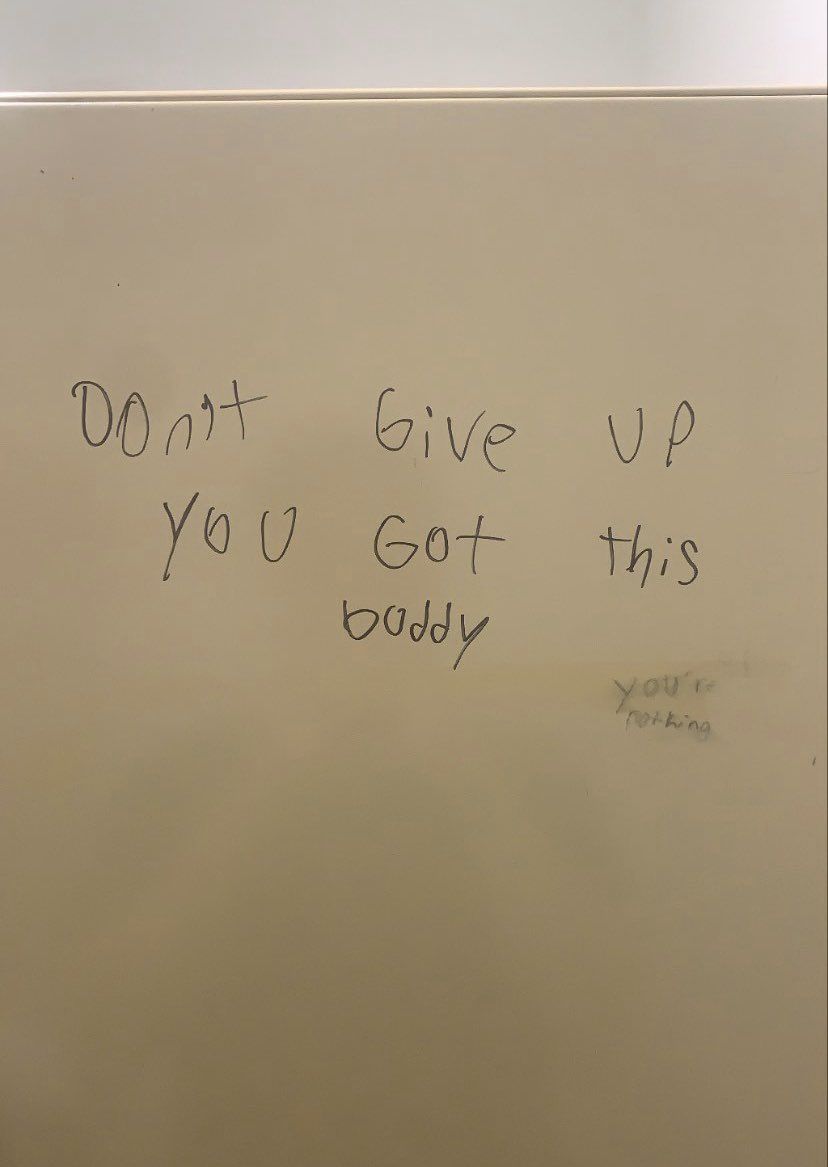 DOn't Give UP
YOU GOt this
buddy
you're
nothing